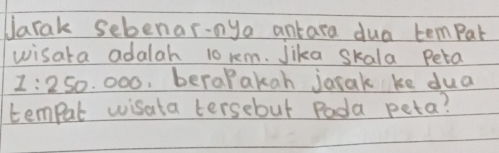 Jarak sebenar-nya antara dua tempat
wisata adalah 10 km. Jika skala Peta
1:250.000. beraPakah jarak ke dua
tempat wisata tersebut Pada peta?